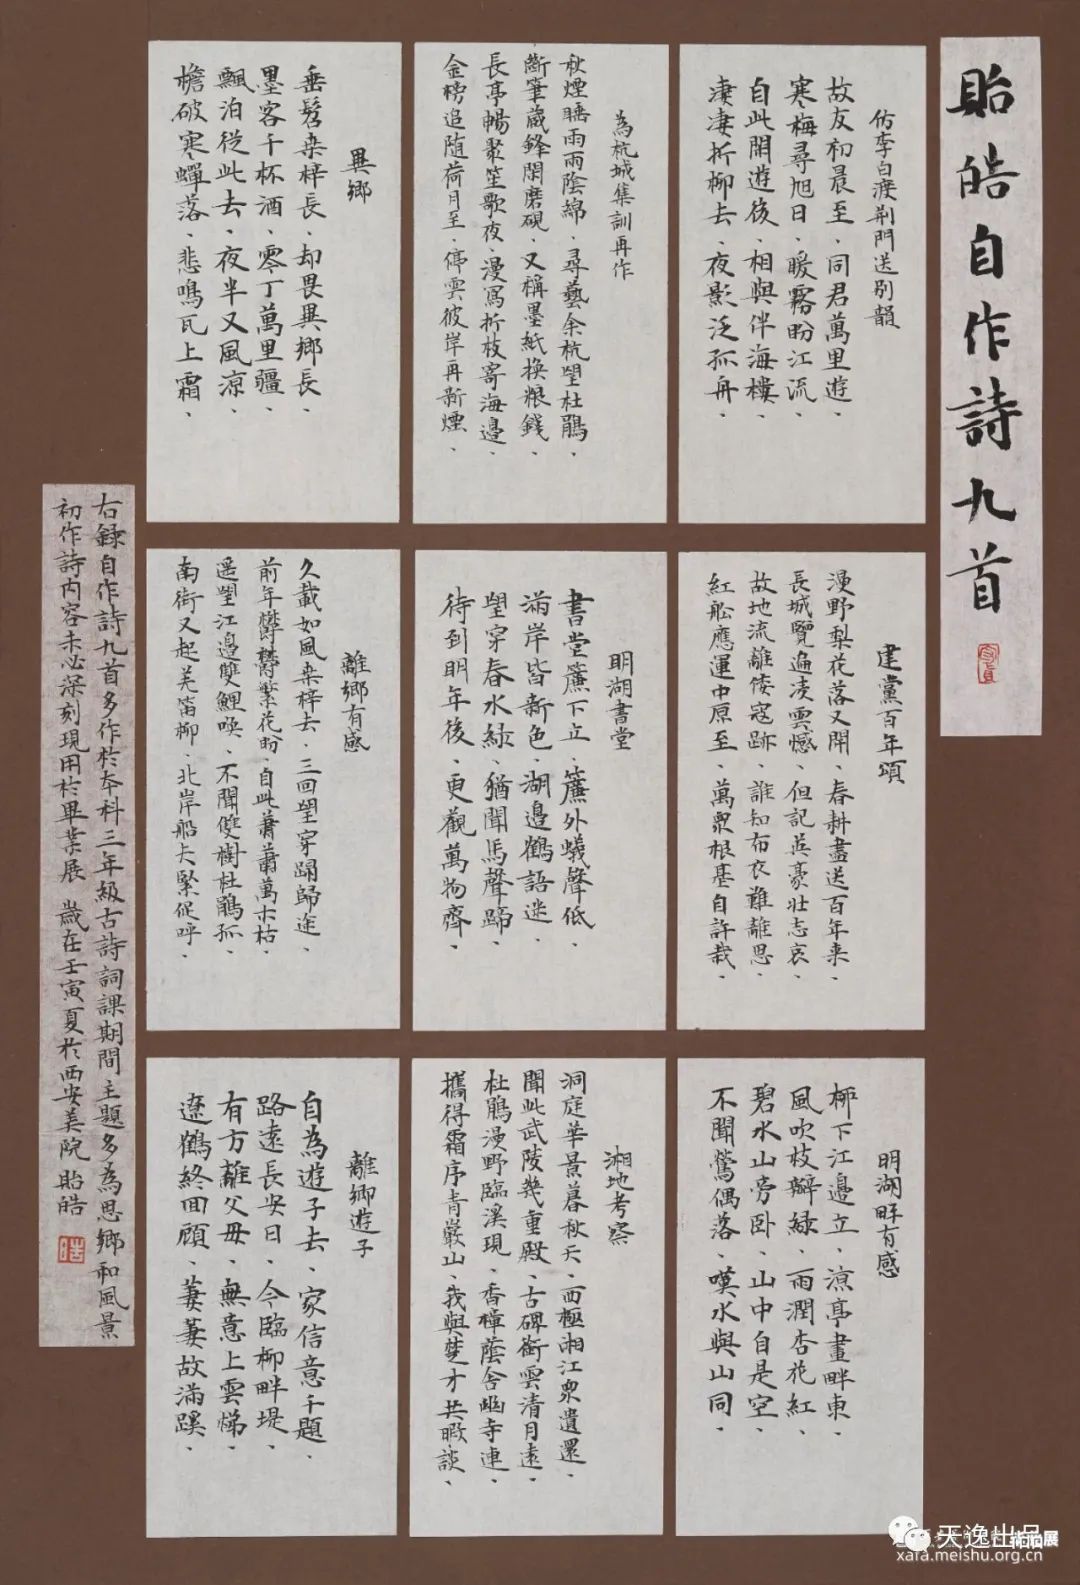 貽皓自作詩九首
仿李白渡荆門送別韻
故友初晨至、同君萬里遊、
寒梅尋旭日、暖霧盼江流、
自此開遊後、相與伴海樓、
淒淒折柳去、夜影泛孤舟、
為杭城集訓再作
秋煙聽雨雨陰綿、尋藝余杭望杜鵑、
斷筆藏鋒閑磨硯、又稱墨紙換粮錢、
長亭暢聚笙歌夜、漫寫折枝寄海邊、
金榜追隨荷月至、停雲彼岸再新煙、
異鄉
垂髫桒梓長、却畏異鄉長、
墨客千杯酒、零丁萬里疆、
飄泊從此去、夜半又風涼、
檐破寒蟬落、悲鳴瓦上霜、
建黨百年頌
漫野梨花落又開、春耕盡送百年来、
長城覽遍凌雲憾、但記英豪壯志哀、
故地流離倭寇跡、誰知布衣難離思、
紅舩應運中原至、萬眾根基自許栽、
明湖書堂
書堂簾下立、簾外蟻聲低、
滿岸皆新色、湖邊鶴語迷、
望穿春水綠、猶聞馬聲蹄、
待到明年後、更觀萬物齊、
離鄉有感
久載如風桒梓去、三回望穿蹋歸途、
前年欝欝繁花盼、自此蕭蕭萬木枯、
遥望江邊雙鯉喚、不聞雙樹杜鵑孤、
南街又起羌笛柳、北岸船夫緊促呼、
明湖畔有感
柳下江邊立、涼亭畫畔東、
風吹枝辮綠、雨潤杏花紅、
碧水山旁卧、山中自是空、
不聞鶯偶落、嘆水與山同、
湘地考察
洞庭華景暮秋天、西極湘江眾遺還、
聞此武陵幾重殿、古碑銜雲清月遠、
杜鵑漫野臨溪現、香樟蔭舍幽寺連、
攜得霜序青巖山、我與楚才共暇談、
離鄉遊子
自為遊子去、家信意千題、
路遠長安日、今臨柳畔堤、
有方離父母、無意上雲悌、
遼鶴終回顧、萋萋故滿蹊、
右錄自作詩九首多作於本科三年級古詩詞課期間主題多為思鄉和風景
初作詩内容未必深刻現用於畢業展 歲在壬寅夏於西安美院 貽皓
天逸出品
xafa.meishu.org.cn